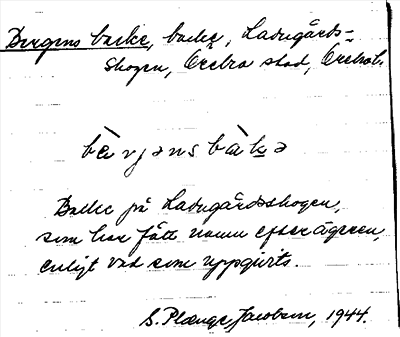 Bergens backe, backe, Ladugårds-
skogen, Örebro stad, Örebro l.
bæ̀rjəns bàkə
Backe på Ladugårdsskogen,
som har fått namn efter ägaren,
enligt vad som uppgivits.
S. Plænge Jacobson, 1944.